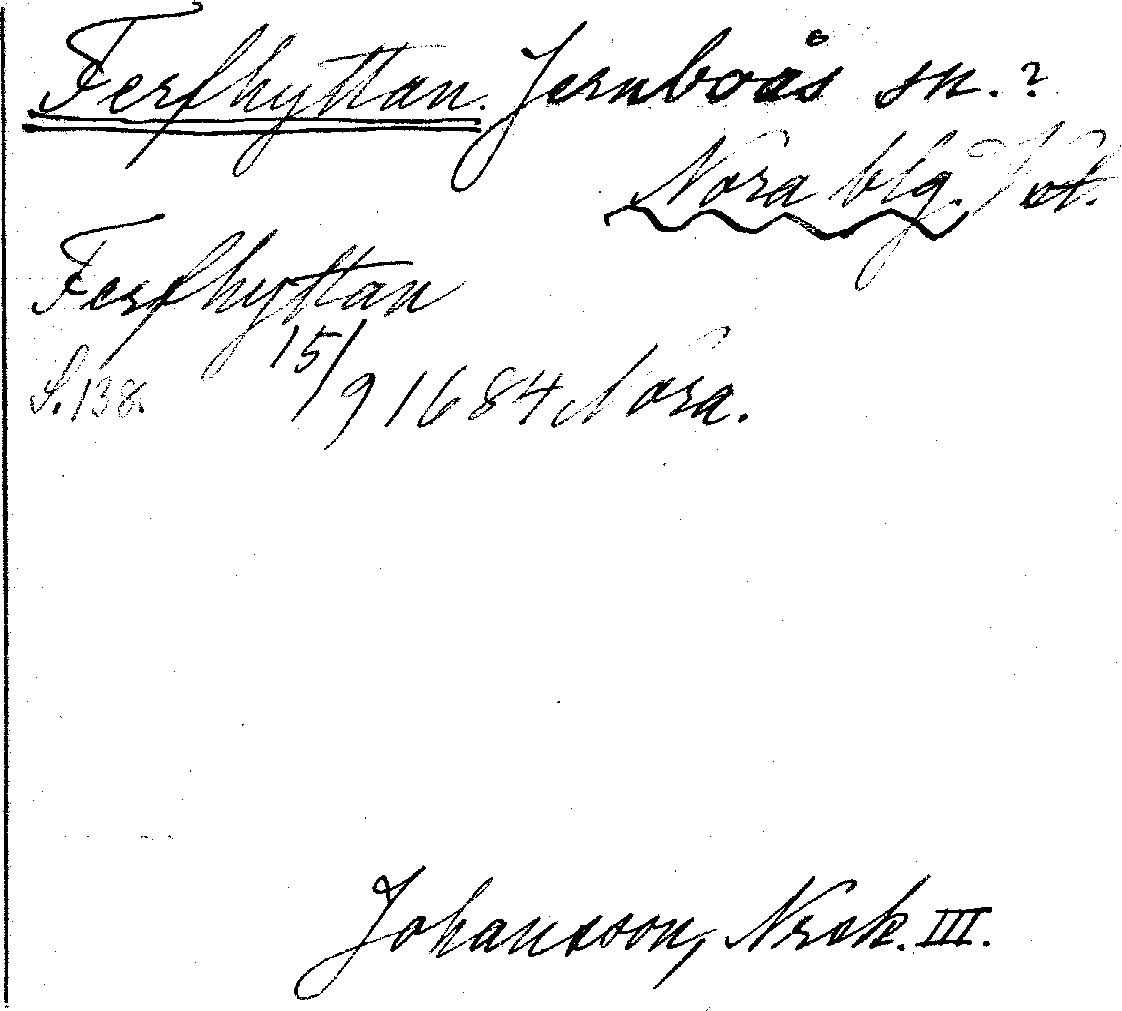 Ferfhyttan. Jernboås sn.?
Nora blg. Vst.
Ferfhyttan
S.138. 15/9 1684 Nora.
Johansson, Nrsk. III.